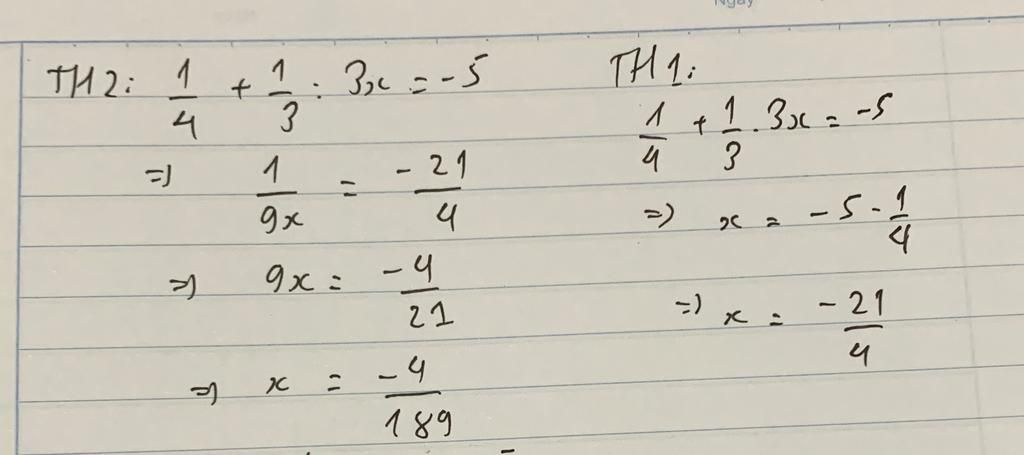 Ngày
TH2: 1/4 + 1/3 : 3x = -5
=> 1/9x = -21/4
=> 9x = -4/21
=> x = -4/189
TH1:
1/4 + 1/3 . 3x = -5
=> x = -5 - 1/4
=> x = -21/4